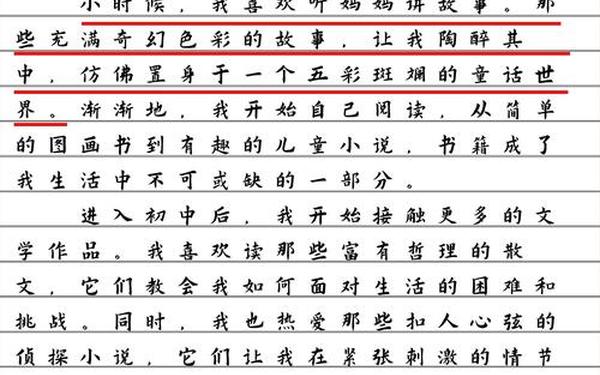 小时候，我喜欢听妈妈讲故事。那
些充满奇幻色彩的故事，让我陶醉其
中，仿佛置身于一个五彩斑斓的童话世
界。渐渐地，我开始自己阅读，从简单
的图画书到有趣的儿童小说，书籍成了
我生活中不可或缺的一部分。
进入初中后，我开始接触更多的文
学作品。我喜欢读那些富有哲理的散
文，它们教会我如何面对生活的困难和
挑战。同时，我也热爱那些扣人心弦的
侦探小说，它们让我在紧张刺激的情节